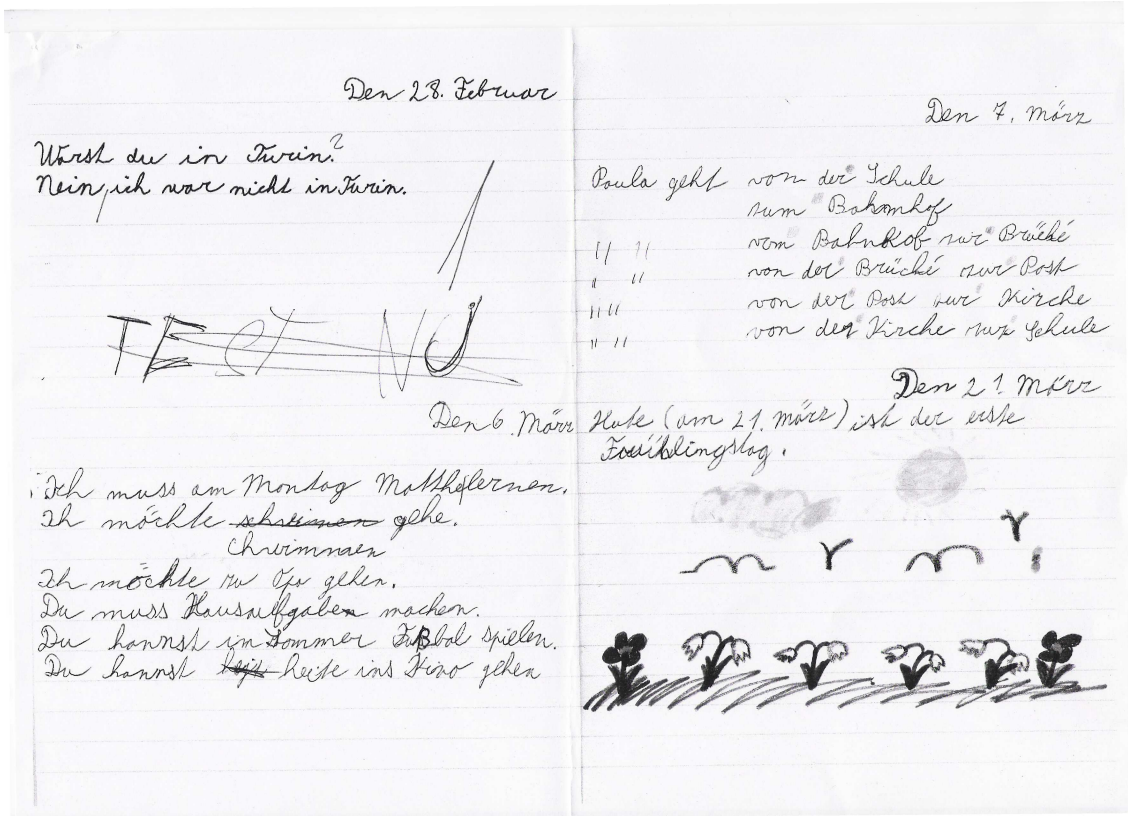 Den 28. Februar
Warst du in Turin?
Nein, ich war nicht in Turin.
TEST NO
Den 6. März
Ich muss am Montag Matthe lernen.
Ich möchte gehe.
chwimmen
Ich möchte zu Opa gehen.
Du muss Hausaufgaben machen.
Du kannst im Sommer Fußbal spielen.
Du kannst heite ins Kino gehen
Den 7. März
Paula geht von der Schule
zum Bahnhof
" " vom Bahnhof zur Brücke
" " von der Brücke zur Post
" " von der Post zur Kirche
" " von der Kirche zur Schule
Den 21. März
Hute (am 21. März) ist der erste
Frühlingstag.